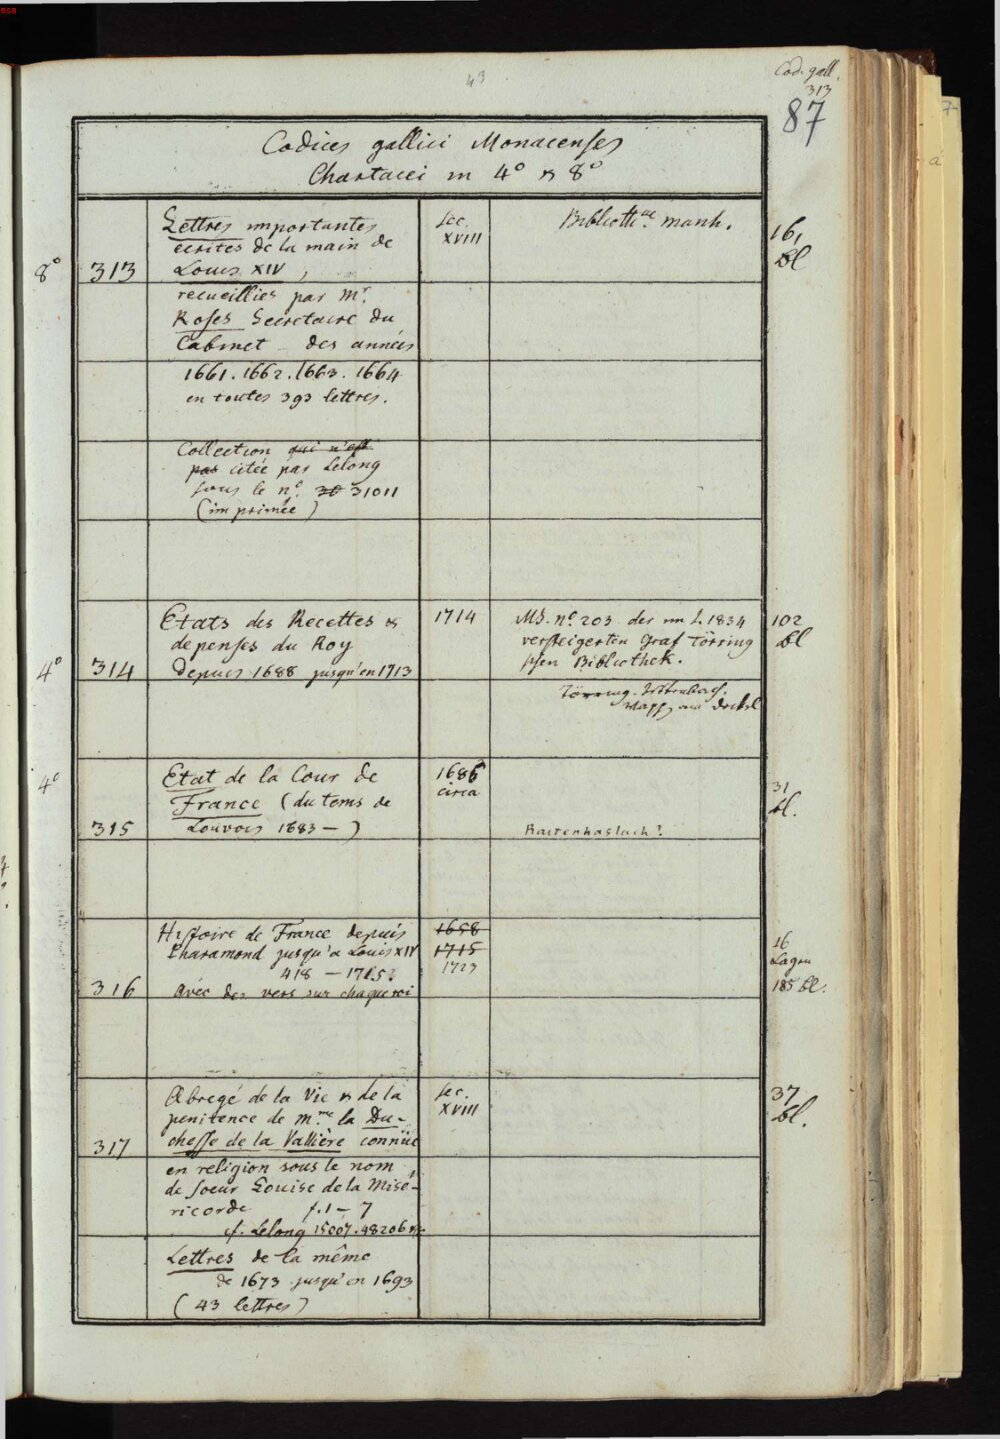 43
Cod. gall.
313
87
Codices gallici Monacenses
Chartacei in 4° & 8°
8°
313
Lettres importantes
écrites de la main de
Louis XIV,
recueillies par Mr.
Roses Secretaire du
Cabinet des années
1661. 1662. 1663. 1664
en toutes 393 lettres.
Collection qui n'est
pas citée par Lelong
sous le n° 30 31011
(imprimée)
sec.
XVIII
Biblioth.ae manh.
161
bl
4°
314
Etats des Recettes &
depenses du Roy
depuis 1688 jusqu'en 1713
1714
MS. n° 203 der im J. 1834
versteigerten Graf Törring
schen Bibliothek.
Törring
Wapp am Deckel
102
bl
4°
315
Etat de la Cour de
France (du tems de
Louvois 1683 – )
1686
circa
Raitenhaslach?
31
bl.
316
Histoire de France depuis
Pharamond jusqu'a Louis XIV
418 – 1715
avec des vers sur chaque roi
1658
1715
1723
16
Lagen
185 bl.
317
Abregé de la Vie & de la
penitence de Mme. la Du-
chesse de la Vallière connüe
en religion sous le nom
de soeur Louise de la Misé-
ricorde f. 1 – 7
cf. Lelong 15007. 48206
Lettres de la même
de 1673 jusqu'en 1693
(43 lettres)
sec.
XVIII
37
bl.